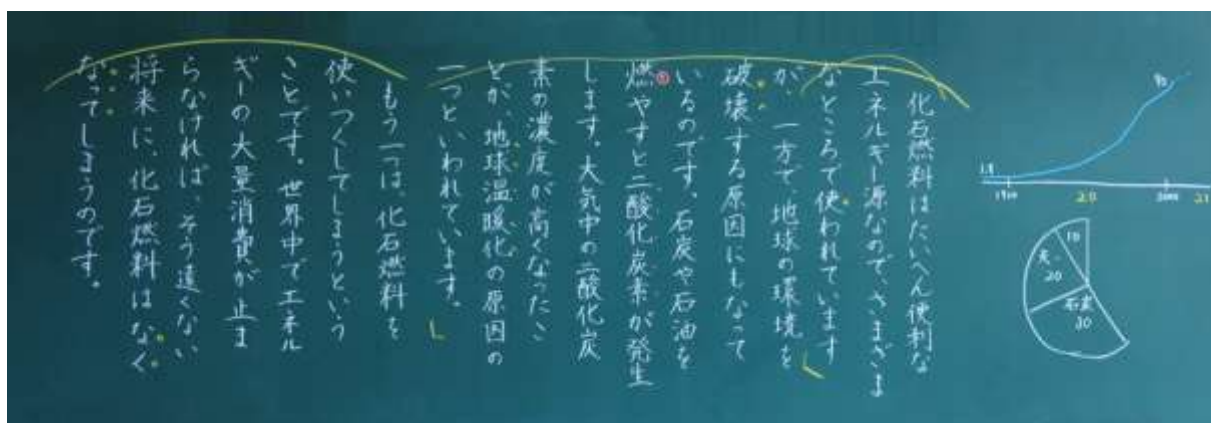 化石燃料はたいへん便利な
エネルギー源なので、さまざま
なところで使われています
が、一方で地球の環境を
破壊する原因にもなって
いるのです。石炭や石油を
燃やすと二酸化炭素が発生
します。大気中の二酸化炭
素の濃度が高くなったこ
とが、地球温暖化の原因の
一つといわれています。
もう一つは、化石燃料を
使いつくしてしまうという
ことです。世界中でエネル
ギーの大量消費が止ま
らなければ、そう遠くない
将来に、化石燃料はなく
なってしまうのです。
1900
20
2000
21
10
20
石炭
30